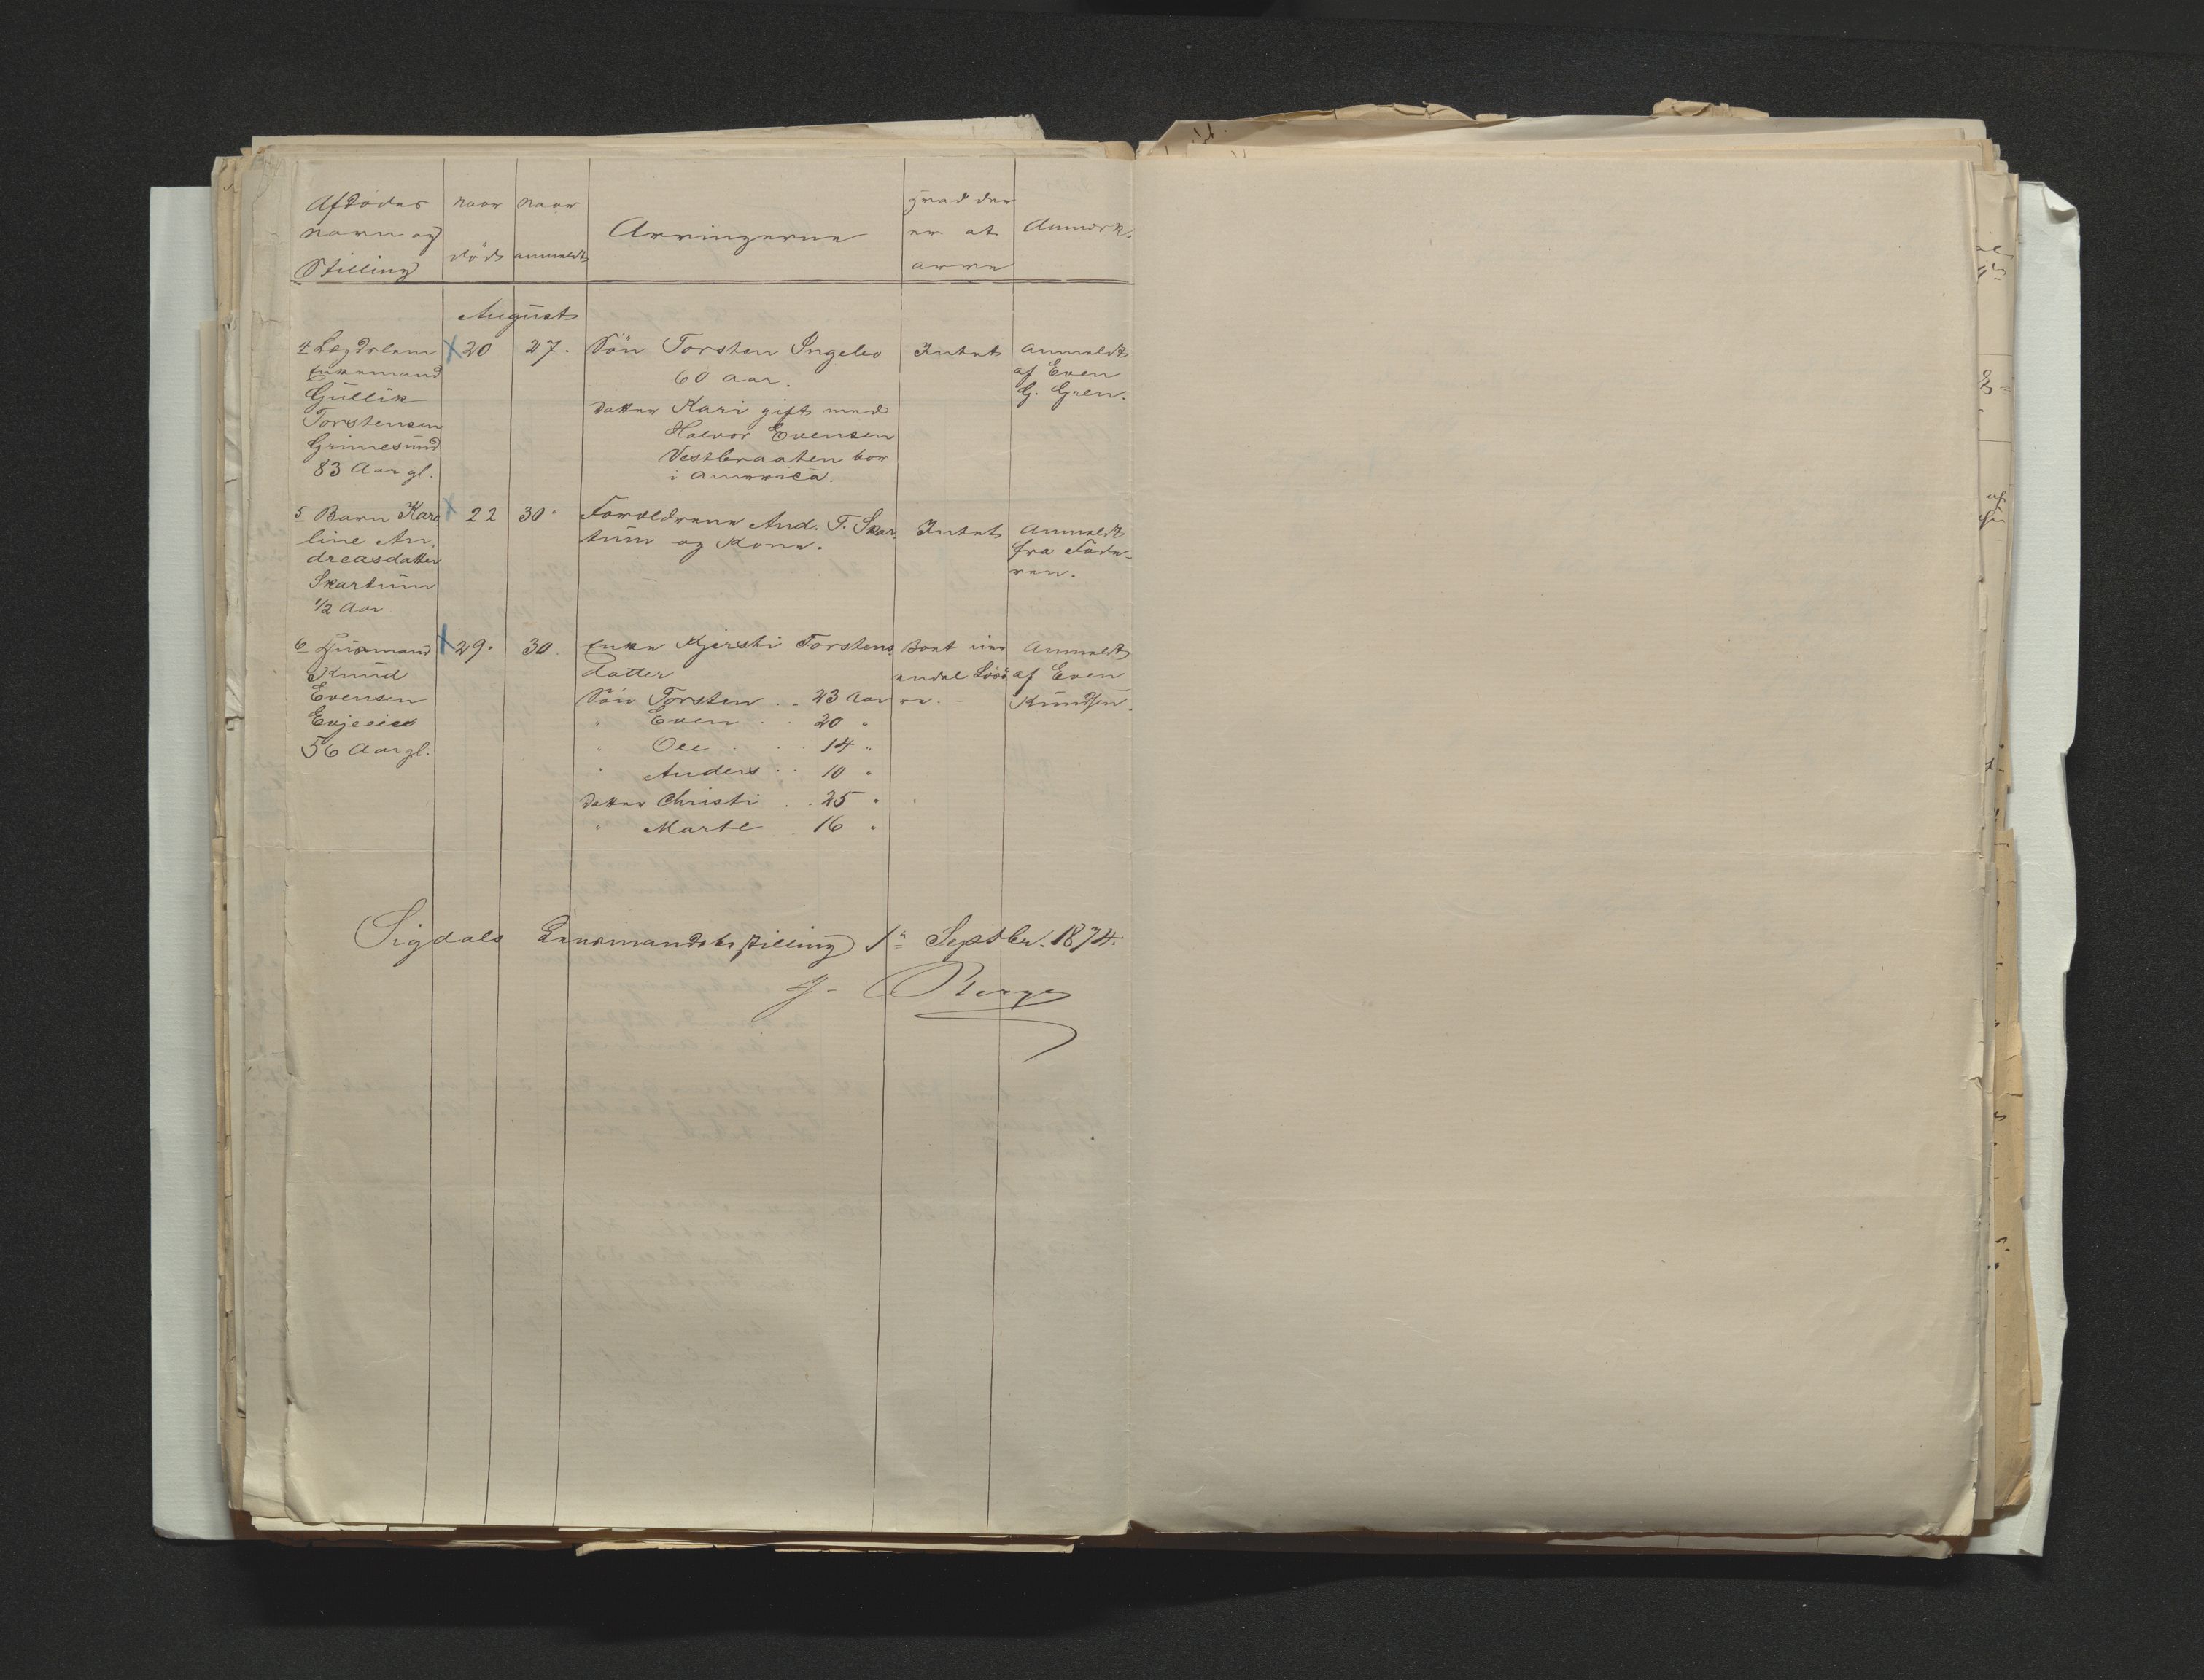 Afdødes
navn og
Stilling
naar
død
naar
anmeldt
Arvingerne
hvad der
er at
arve
Anmærk.
August
4 Lægdslem
Enkemand
Gullik
Torstensen
Grimesund
83 Aar gl.
20
27.
Søn Torsten Ingelio
60 Aar.
datter Kari gift med
Halvor Evensen
Vestbraaten bor
i America.
Intet
Anmeldt
af Even
G. Gren.
5 Barn Karo
line An-
dreasdatter
Skartum
1/2 Aar
22
30.
Forældrene And. T. Skar
tum og Kone.
Intet
Anmeldt
fra Fade-
ren.
6 Husmand
Knud
Evensen
Evjeeie
56 Aar gl.
29.
30
Enke Kjersti Torstens
datter
Søn Torsten .. 23 Aar
" Even .. 20 "
" Ole .. 14 "
" Anders .. 10 "
datter Christi .. 25 "
" Marte .. 16 "
Boet
Løsö
re.
Anmeldt
af Even
Knudsen.
Sigdals Lensmandsbestilling 1ste Septbr. 1874.
Berge